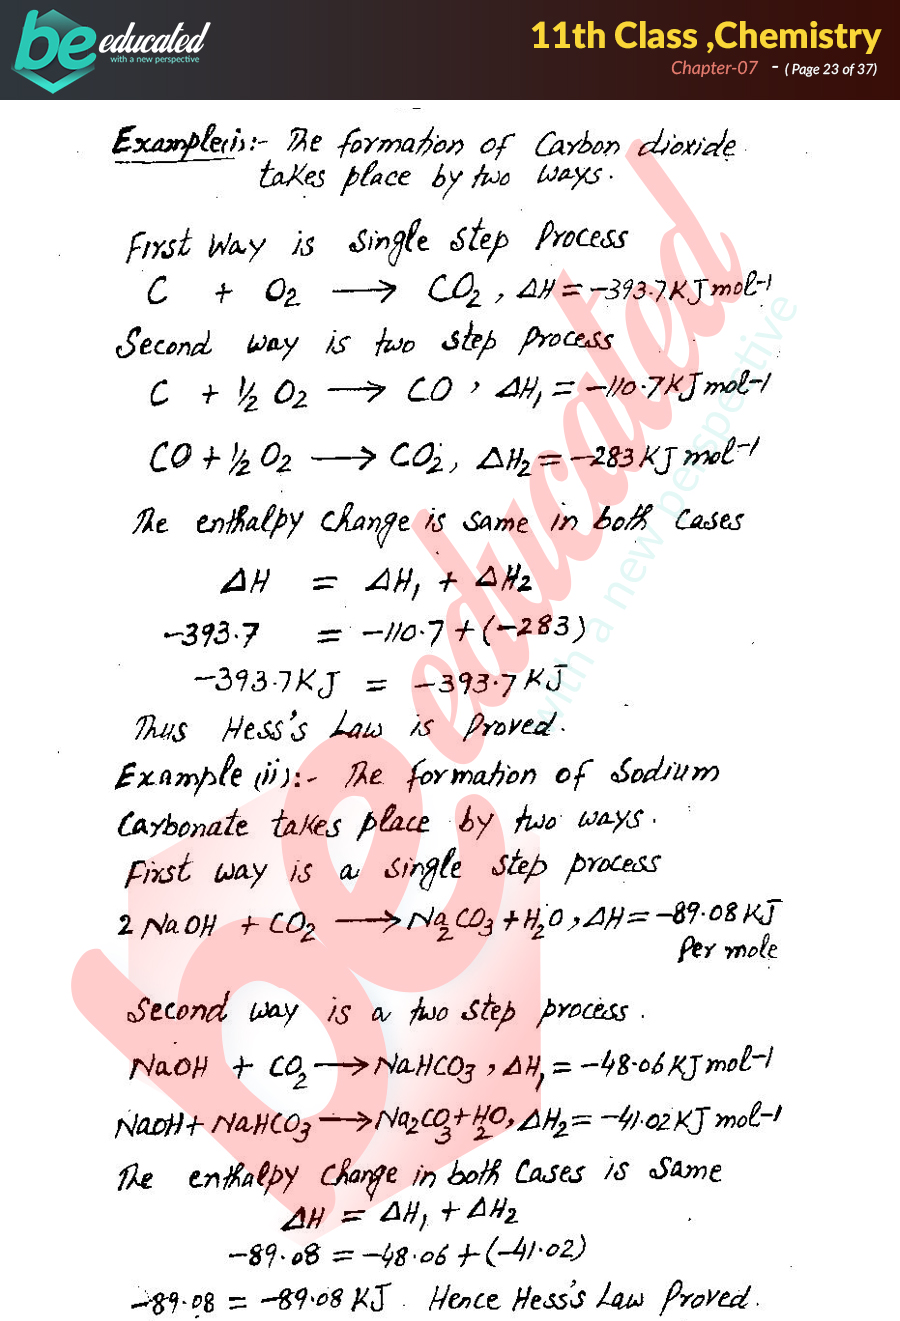 be educated
with a new perspective
11th Class ,Chemistry
Chapter-07 - ( Page 23 of 37)
Example(i):- The formation of Carbon dioxide
takes place by two ways.
First Way is single step Process
C + O2 ⟶ CO2 , ΔH = -393.7 KJ mol-1
Second way is two step Process
C + ½ O2 ⟶ CO , ΔH1 = -110.7 KJ mol-1
CO + ½ O2 ⟶ CO2, ΔH2 = -283 KJ mol-1
The enthalpy change is same in both Cases
ΔH = ΔH1 + ΔH2
-393.7 = -110.7 + (-283)
-393.7 KJ = -393.7 KJ
Thus Hess's Law is Proved.
Example (ii):- The formation of Sodium
Carbonate takes place by two ways.
First way is a single step process
2 NaOH + CO2 ⟶ Na2CO3 + H2O , ΔH = -89.08 KJ
Per mole
Second way is a two step process.
NaOH + CO2 ⟶ NaHCO3 , ΔH1 = -48.06 KJ mol-1
NaOH + NaHCO3 ⟶ Na2CO3 + H2O, ΔH2 = -41.02 KJ mol-1
The enthalpy change in both Cases is same
ΔH = ΔH1 + ΔH2
-89.08 = -48.06 + (-41.02)
-89.08 = -89.08 KJ . Hence Hess's Law Proved.
be educated
with a new perspective